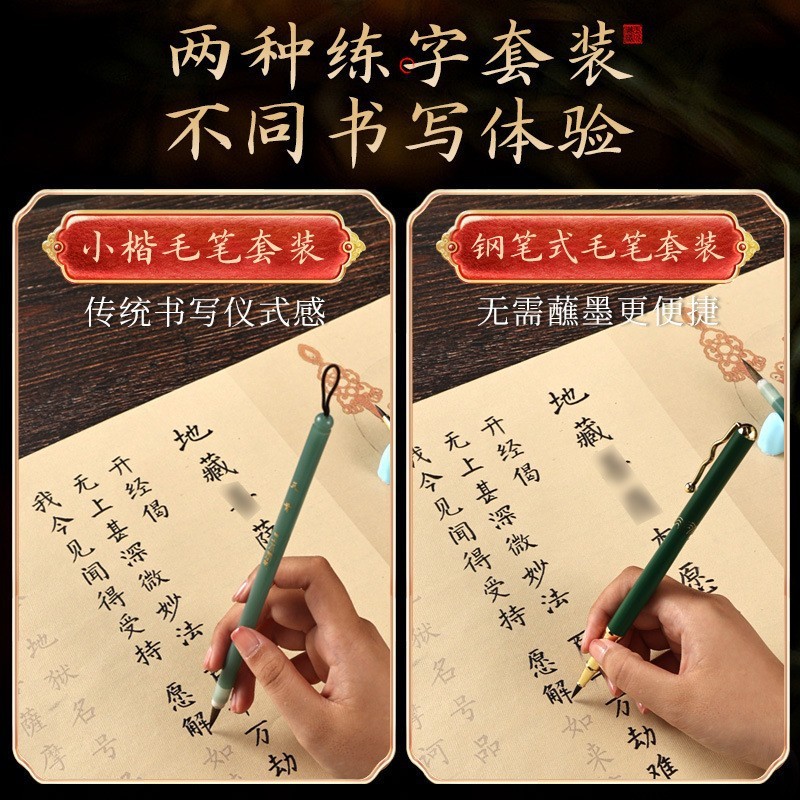 两种练字套装
不同书写体验
小楷毛笔套装
传统书写仪式感
地藏萨
开经偈
无上甚深微妙法 万劫
我今见闻得受持 愿解如
地獄名号
薩摩
钢笔式毛笔套装
无需蘸墨更便捷
地藏本愿
开经偈
无上甚深微妙法 万劫难
我今见闻得受持 愿解如来
獄名号品
訶